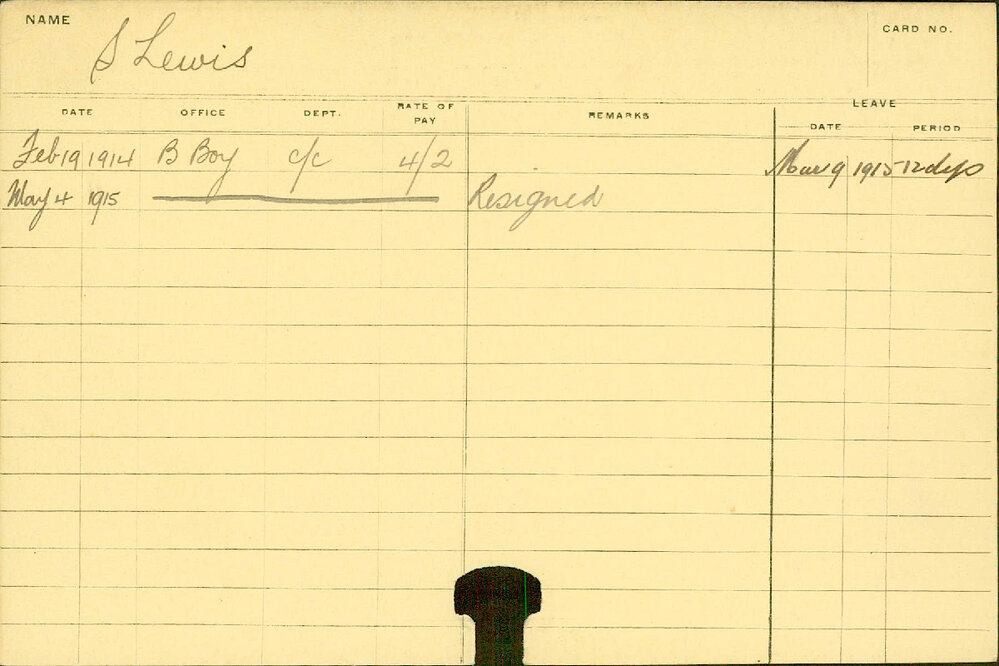 NAME
S Lewis
CARD NO.
DATE OFFICE DEPT. RATE OF PAY REMARKS LEAVE
DATE PERIOD
Feb 19 1914 B Boy c/c 4/2 Mar 9 1915 12 days
May 4 1915 Resigned